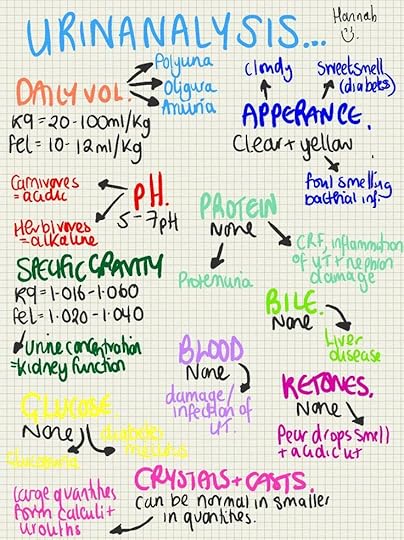 Hannah
URINANALYSIS...
DAILY VOL.
Polyuria
Oligura
Anuria
K9 = 20-100ml/Kg
Fel = 10-12ml/Kg
Cloudy
Sweet smell
(diabetes)
APPERANCE.
Clear + yellow
foul smelling
bacterial inf.
Carnivores
= acidic
PH.
5-7pH
Herbivores
= alkaline
PROTEIN
None
Proteinuria
CRF, inflammation
of UT + nephron
damage
SPECIFIC GRAVITY
K9 = 1.016-1.060
fel = 1.020-1.040
Urine concentration
= kidney function
BILE.
None
Liver
disease
BLOOD
None
damage/
infection of
UT.
KETONES.
None
Pear drops smell
+ acidic ut
GLUCOSE.
None
diabetes
mellitus
Glucosuria
CRYSTALS + CASTS.
Can be normal in smaller
in quantites.
large quantities
form calculi +
uroliths